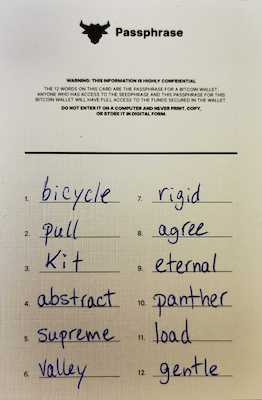 Passphrase
WARNING: THIS INFORMATION IS HIGHLY CONFIDENTIAL
THE 12 WORDS ON THIS CARD ARE THE PASSPHRASE FOR A BITCOIN WALLET.
ANYONE WHO HAS ACCESS TO THE SEEDPHRASE AND THIS PASSPHRASE FOR THIS
BITCOIN WALLET WILL HAVE FULL ACCESS TO THE FUNDS SECURED IN THE WALLET.
DO NOT ENTER IT ON A COMPUTER AND NEVER PRINT, COPY,
OR STORE IT IN DIGITAL FORM.
1. bicycle
2. pull
3. Kit
4. abstract
5. supreme
6. valley
7. rigid
8. agree
9. eternal
10. panther
11. load
12. gentle